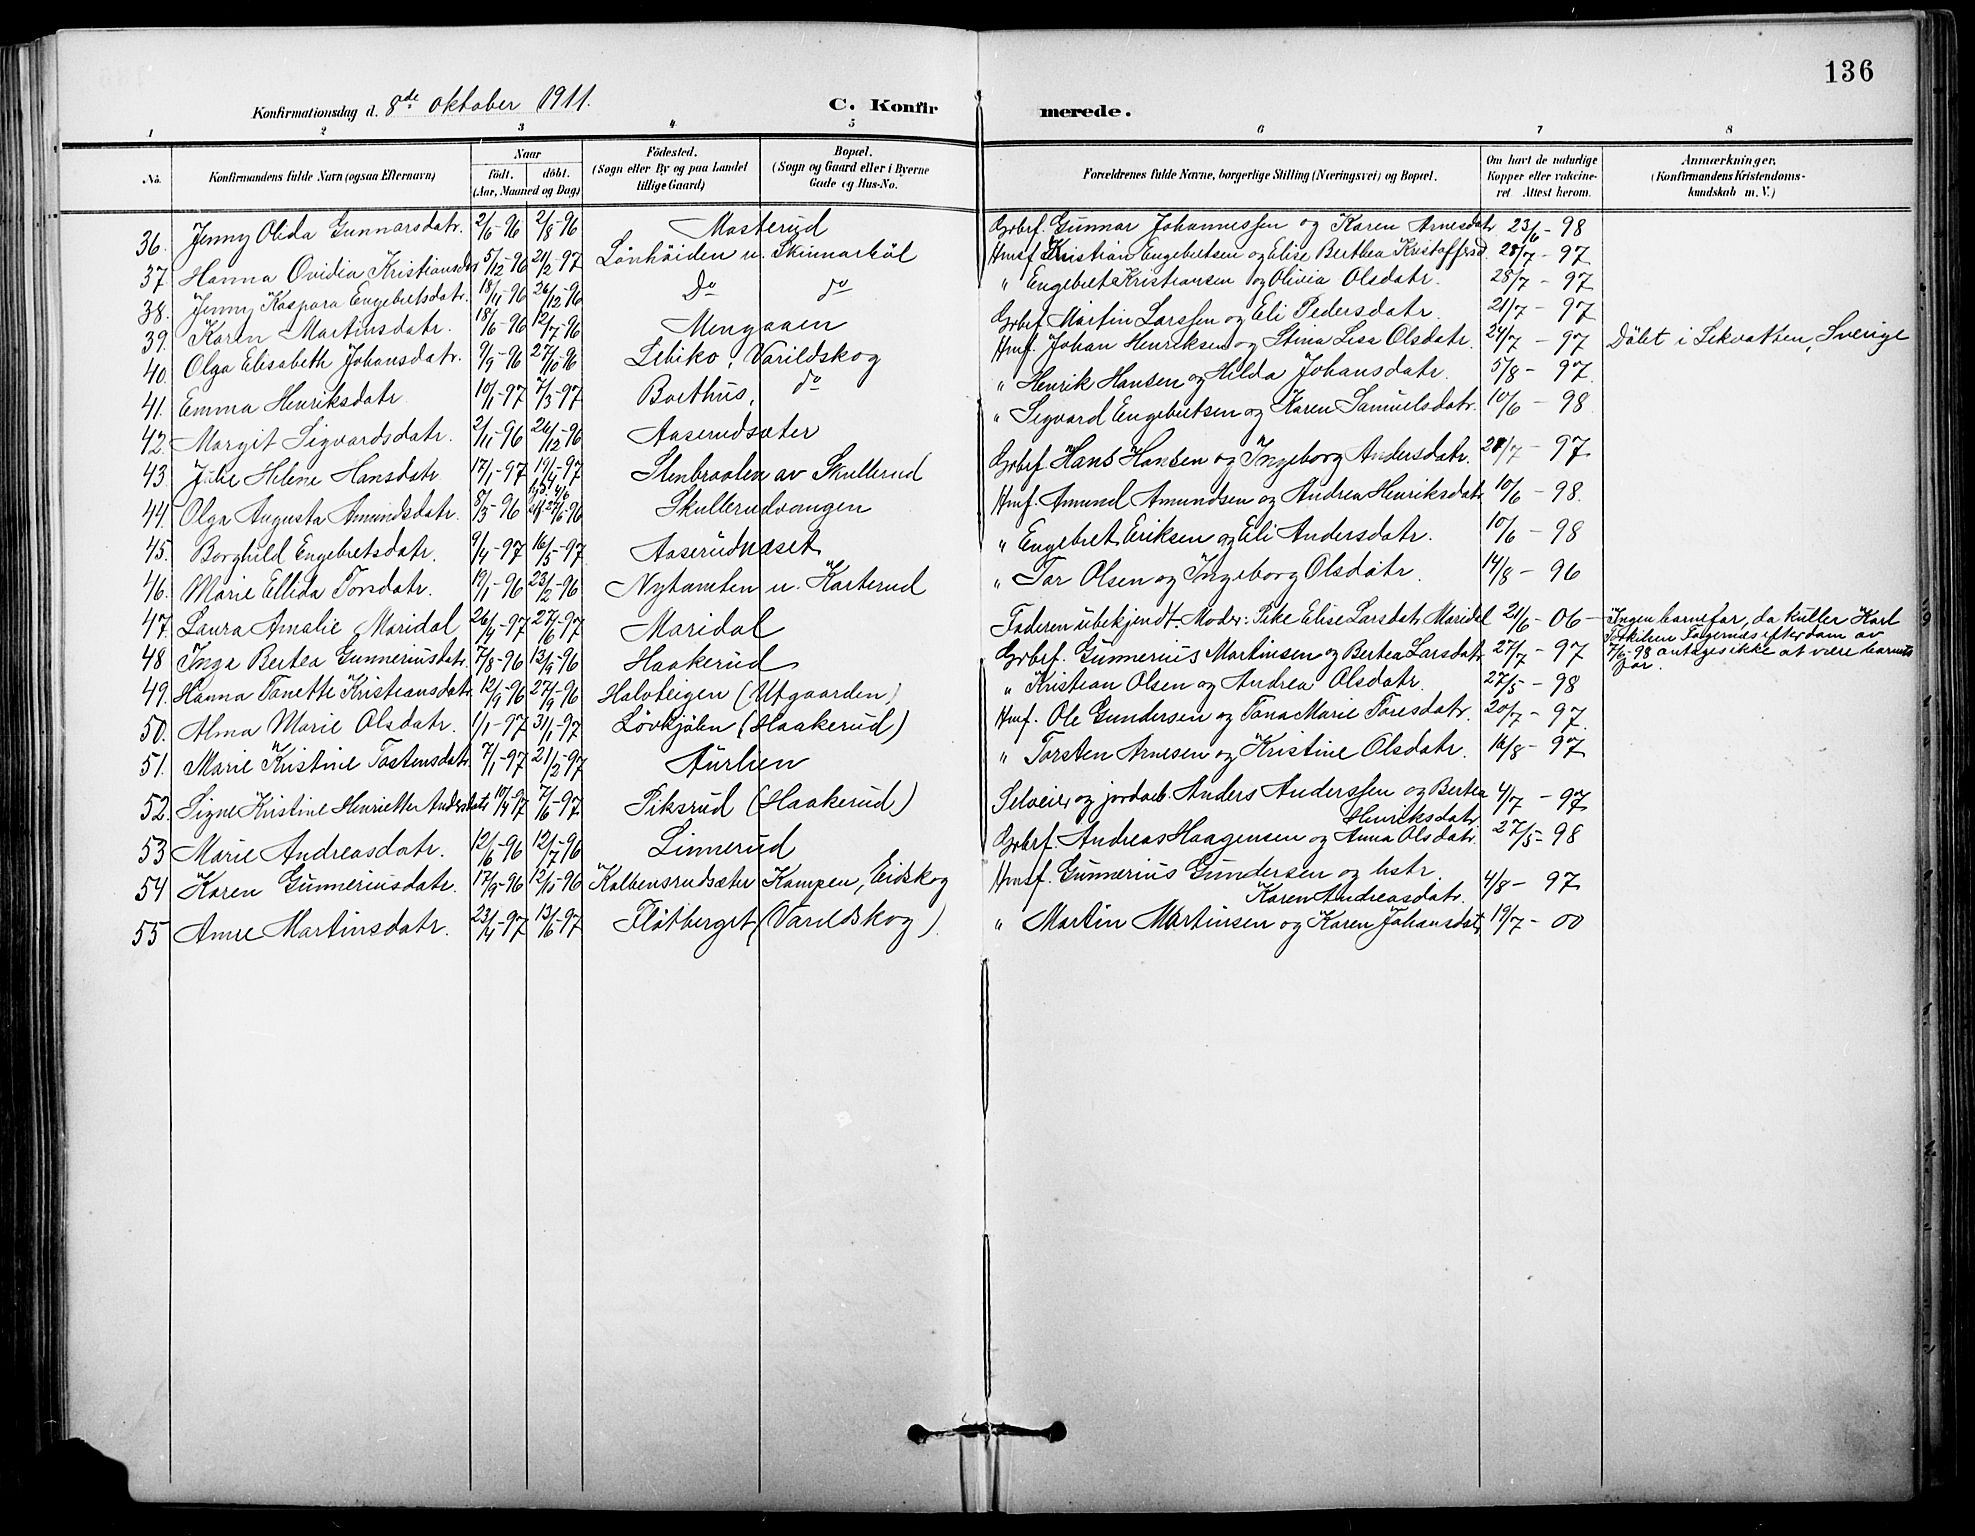 136
Konfirmationsdag d. 8de oktober 1911.
C. Konfirmerede.
1 2 3 4 5 6 7 8
No. Konfirmandens fulde Navn (ogsaa Efternavn) Naar født. døbt. (Aar, Maaned og Dag) Fødested. (Sogn eller By og paa Landet tillige Gaard) Bopæl. (Sogn og Gaard eller i Byerne Gade og Hus-No. Forældrenes fulde Navne, borgerlige Stilling (Næringsvei) og Bopæl. Om havt de naturlige Kopper eller vakcineret Attest herom. Anmærkninger, (Konfirmandens Kristendomskundskab m. V.)
36. Jenny Olida Gunnarsdatr. 2/6-96 2/8-96 Masterud Gbrf. Gunnar Johannessen og Karen Arnesdatr 23/6-98
37. Hanna Ovidia Kristiansdtr 5/12-96 21/2-97 Lönhöiden u. Skinnarböl Hmf Kristian Engebretsen og Elise Berthea Kristoffersd. 28/7-97
38. Jenny Kaspara Engebretsdatr. 18/11-96 26/12-96 Do do " Engebret Kristiansen og Olivia Olsdatr. 28/7-97
39. Karen Martinsdatr. 18/6-96 12/7-96 Mengaaen Gbrf Martin Larssen og Eli Pedersdatr. 21/7-97
40. Olga Elisabeth Johansdatr. 9/9-96 27/10-96 Lebiko, Varildskog Hmf. Johan Henriksen og Stina Lisa Olsdatr. 24/7-97 Döbt i Lekvatten, Sverige
41. Emma Henriksdatr. 10/1-97 7/3-97 Borthus, do " Henrik Hansen og Hilda Johansdatr. 5/8-97
42. Margit Sigvardsdatr. 2/11-96 26/12-96 Aaserudsæter " Sigvard Engebretsen og Karen Samuelsdatr. 10/6-98
43. Julie Helene Hansdatr 17/1-97 19/4-97 Stenbraaten av Skullerud Gbrf. Hans Hansen og Ingeborg Andersdatr. 21/7-97
44. Olga Augusta Amundsdatr. 8/3-96 Skullerudvangen Hmf. Amund Amundsen og Andrea Henriksdatr 10/6-98.
45. Borghild Engebretsdatr. 9/4-97 16/5-97 Aaserudnæset " Engebret Eriksen og Eli Andersdatr. 10/6-98
46. Marie Ellida Torsdatr. 19/1-96 23/2-96 Nytomten u. Karterud " Tor Olsen og Ingeborg Olsdatr. 14/8-96
47. Laura Amalie Maridal 26/4-97 27/6-97 Maridal Faderen ubekjendt Moder: Pike Elise Larsdatr Maridal 21/6-06 Ingen barnefar, da kuller Karl
48 Inga Bertea Gunneriusdatr. 7/8-96 13/9-96 Haakerud Gbrf. Gunnerius Martinsen og Bertea Larsdatr 27/7-97 Torkilsen Fagernæs efter dom av
7/6-98 antages ikke at være barnets
far.
49. Hanna Tanette Kristiansdatr. 12/9-96 27/9-96 Halvteigen (Utgaarden) " Kristian Olsen og Andrea Olsdatr. 27/5-98
50. Alma Marie Olsdatr. 1/1-97 31/1-97 Lövkjölen (Haakerud) Hmf. Ole Gundersen og Tona Marie Toresdatr. 20/7-97.
51. Marie Kristine Tostensdatr. 7/1-97 21/2-97 Aurlien " Torsten Arnesen og Kristine Olsdatr. 16/8-97
52. Signe Kristine Henriette Andersdatr 10/4-97 7/6-97 Piksrud (Haakerud) Selveier og jordarb. Anders Anderssen og Bertea 4/7-97
Henriksdatr
53 Marie Andreasdatr. 12/6-96 12/7-96 Linnerud Gbrf. Andreas Haagensen og Anna Olsdatr. 27/5-98
54 Karen Gunneriusdatr. 17/9-96 Kalbensrudsæter Kampen, Eidskog Hmf. Gunnerius Gundersen og hstr. 4/8-97
Karen Andreasdatr.
55 Anne Martinsdatr. 23/4-97 13/6-97 Flötberget (Varildskog) " Martin Martinsen og Karen Johansdatr 19/7-00